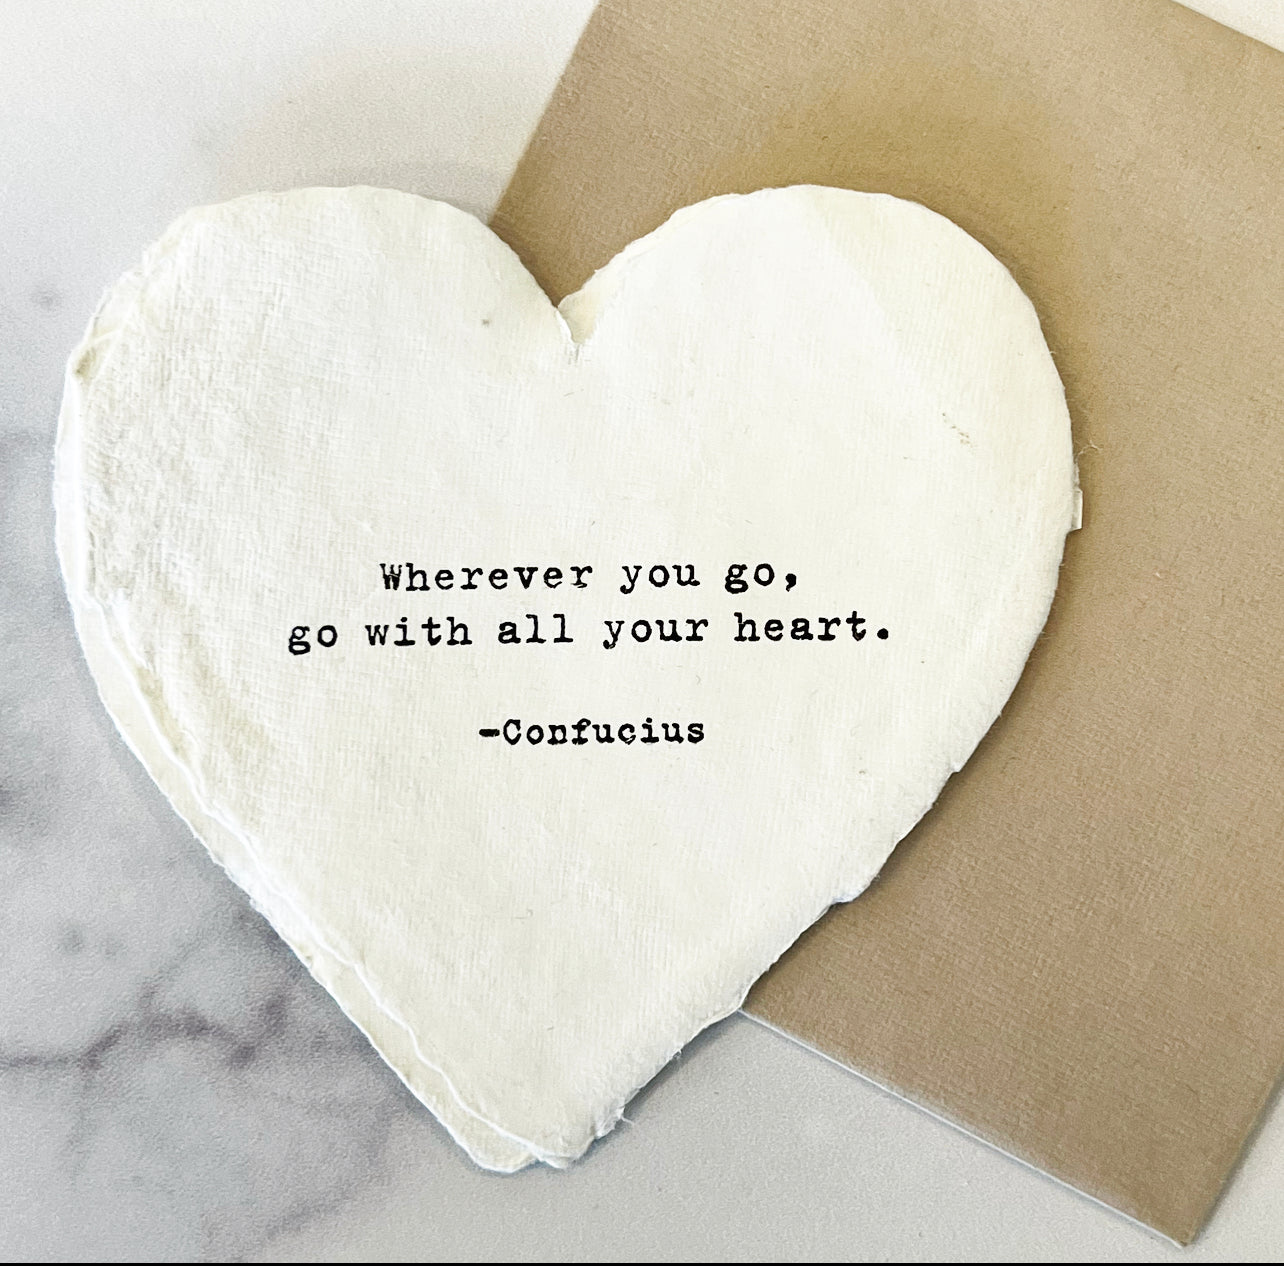 Wherever you go,
go with all your heart.
-Confucius